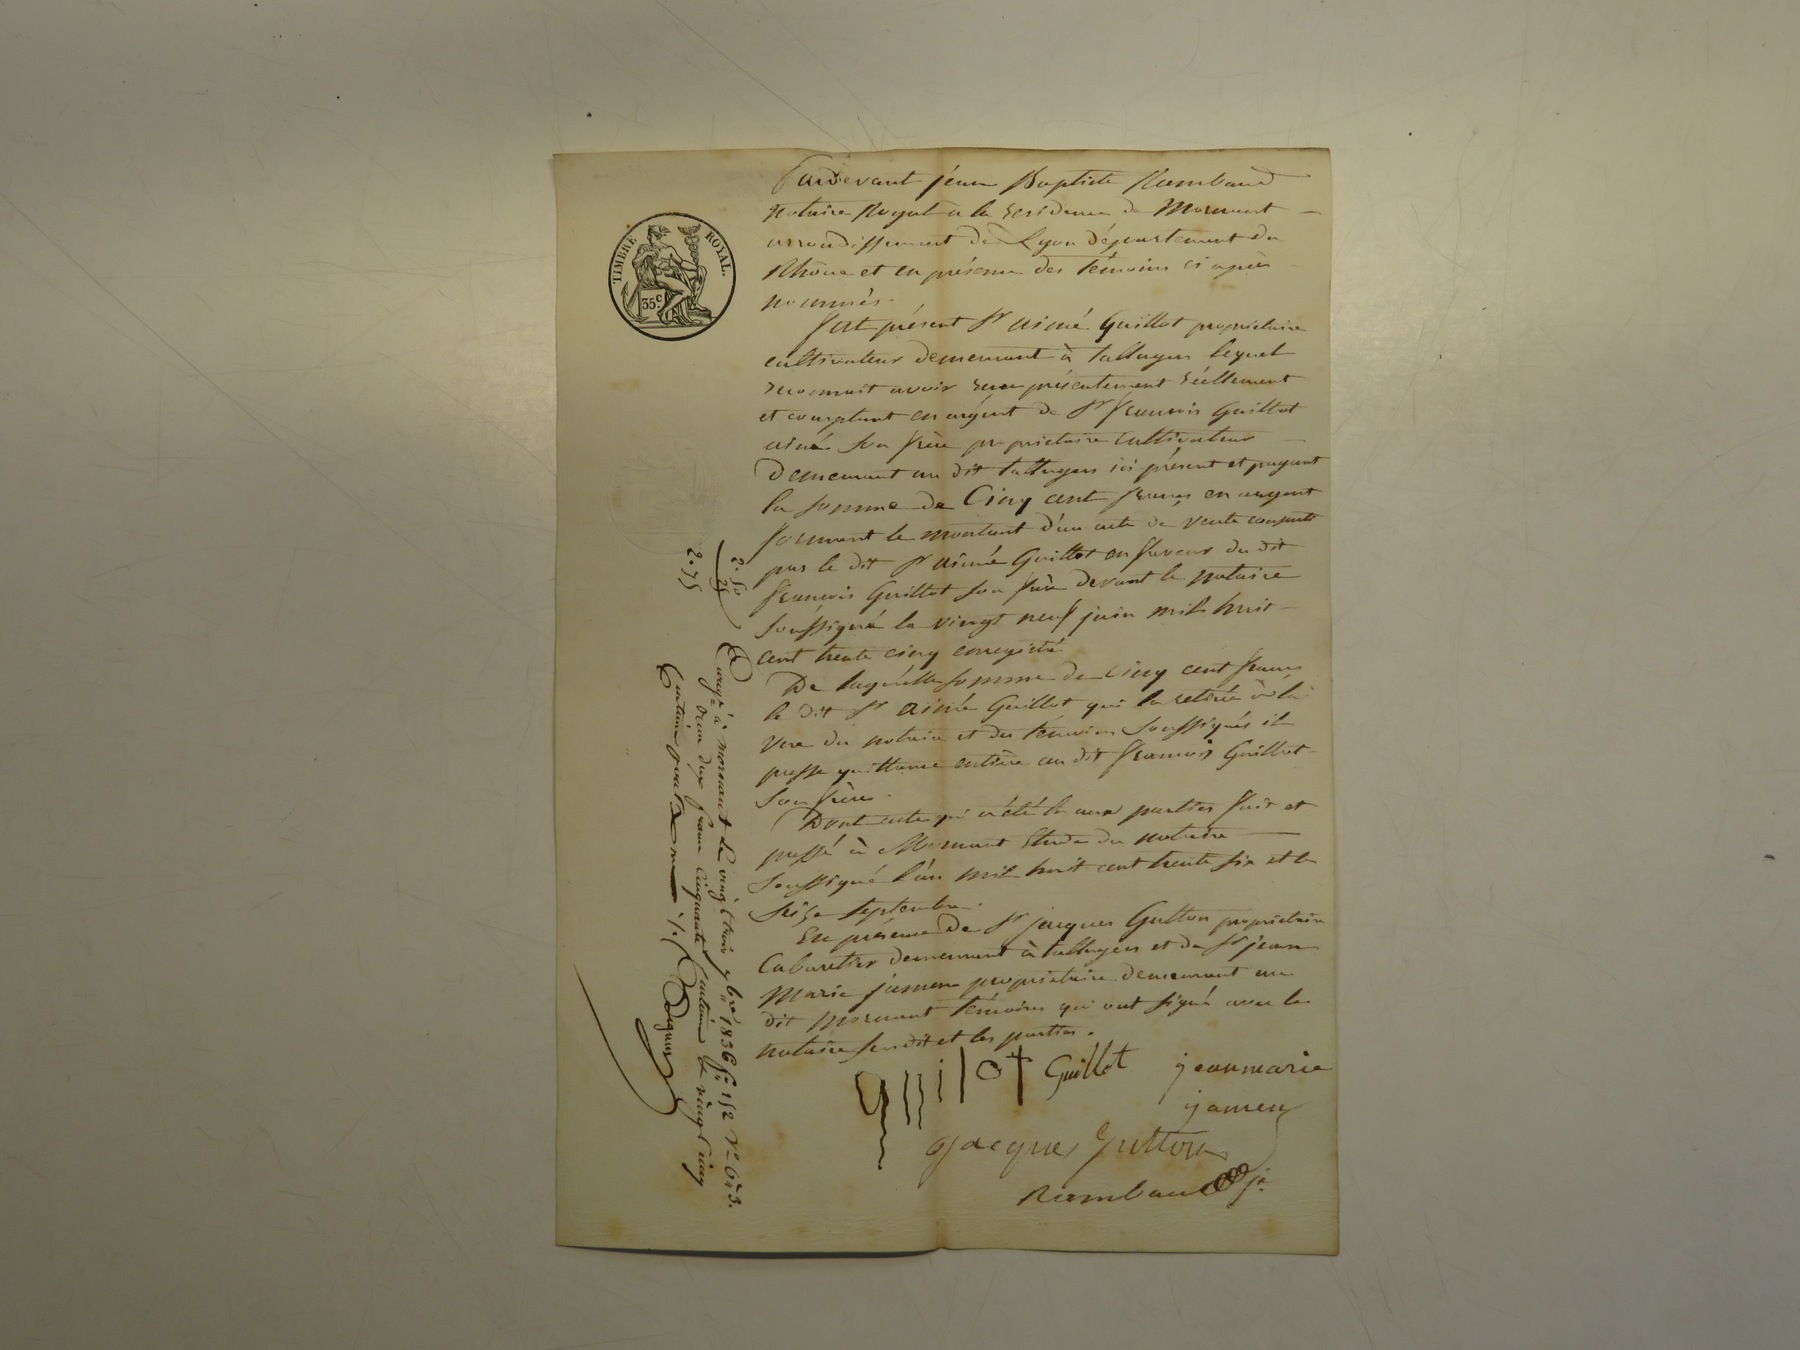 TIMBRE ROYAL.
35c.
Pardevant jean Baptiste Rambaud
Notaire Royal a la residence de Mornant
arrondissement de Lyon département du
Rhône et en présence des témoins ci après
nommés.
fut présent Sr aimé Guillot propriétaire
cultivateur demeurant à talluyers lequel
reconnait avoir reçu présentement réellement
et comptant en argent de Sr françois Guillot
ainé son frère propriétaire cultivateur
demeurant au dit talluyers ici présent et payant
la somme de Cinq cent francs en argent
formant le montant d'un acte de vente consenti
par le dit Sr aimé Guillot en faveur du dit
françois Guillot son frère devant le notaire
soussigné le vingt neuf juin mil huit
cent trente cinq enregistré.
De laquelle somme de Cinq cent francs
le dit Sr aimé Guillot qui la retirée à la
vue du notaire et des témoins soussignés il
passe quittance entière au dit françois Guillot
son frère.
Dont acte qui a été lu aux parties fait et
passé à Mornant Etude du notaire
soussigné l'an mil huit cent trente six et le
seize septembre.
En présence de Sr jacques Gutton propriétaire
Cabaretier demeurant à talluyers et de Sr jean
Marie jamen propriétaire demeurant au
dit Mornant témoins qui ont signé avec le
notaire susdit et les parties.
guilot Guillot jeanmarie
jamen
jacque Gutton
Rambaud
2. 50
25
2. 75
Enregé à mornant le vingt trois 7bre 1836 fo 152
reçu deux francs cinquante centimes et vingt cinq
Centimes pour